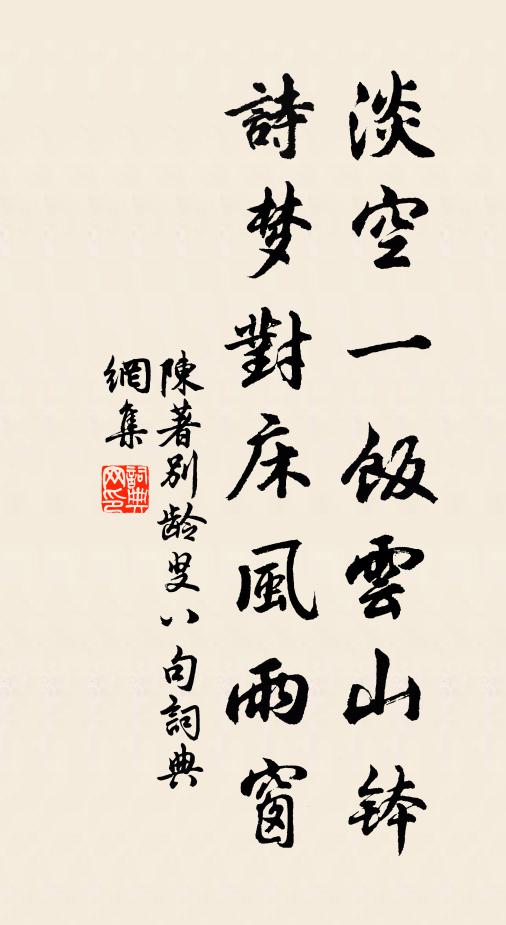 淡空一飯雲山鉢
詩梦對床風雨窗
陳著別龄叟八句詞典
網集
詞典網印